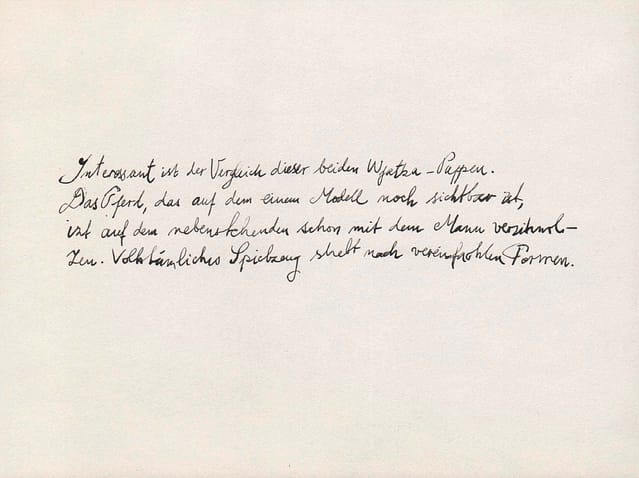 Interessant ist der Vergleich dieser beiden Wjatka-Puppen.
Das Pferd, das auf dem einem Modell noch sichtbar ist,
ist auf dem nebenstehenden schon mit dem Mann verschmol-
zen. Volkstümliches Spielzeug strebt nach vereinfachten Formen.